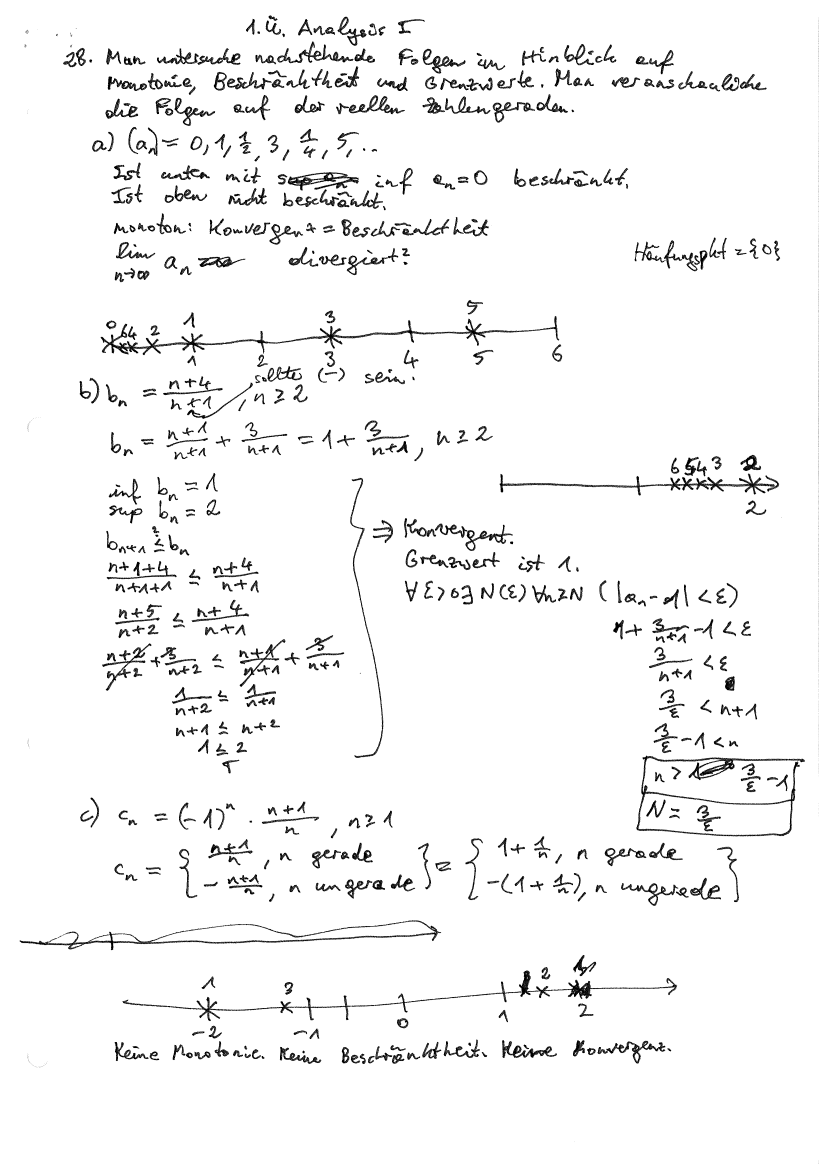 1. Ü. Analysis I
28. Man untersuche nachstehende Folgen im Hinblick auf
Monotonie, Beschränktheit und Grenzwerte. Man veranschauliche
die Folgen auf der reellen Zahlengeraden.
a) (a_n) = 0, 1, 1/2, 3, 1/4, 5, ..
Ist unten mit inf a_n = 0 beschränkt.
Ist oben nicht beschränkt.
monoton: Konvergenz = Beschränktheit
lim n→∞ a_n divergiert?
Häufungspkt = {0}
0 6 4 2 1 3 5
1 2 3 4 5 6
b) b_n = (n+4)/(n+1), n ≥ 2
sollte (-) sein!
b_n = (n+1)/(n+1) + 3/(n+1) = 1 + 3/(n+1), n ≥ 2
6 5 4 3 2
2
inf b_n = 1
sup b_n = 2
b_{n+1} ≤? b_n
(n+1+4)/(n+1+1) ≤ (n+4)/(n+1)
(n+5)/(n+2) ≤ (n+4)/(n+1)
(n+2)/(n+2) + 3/(n+2) ≤ (n+1)/(n+1) + 3/(n+1)
1/(n+2) ≤ 1/(n+1)
n+1 ≤ n+2
1 ≤ 2
⇒ Konvergent.
Grenzwert ist 1.
∀ε>0 ∃N(ε) ∀n≥N (|a_n - 1| < ε)
1 + 3/(n+1) - 1 < ε
3/(n+1) < ε
3/ε < n+1
3/ε - 1 < n
n > 3/ε - 1
N = 3/ε
c) c_n = (-1)^n · (n+1)/n, n ≥ 1
c_n = { (n+1)/n, n gerade } = { 1 + 1/n, n gerade }
{ -(n+1)/n, n ungerade } { -(1 + 1/n), n ungerade }
1 3 2
-2 -1 0 1 2
Keine Monotonie. Keine Beschränktheit. Keine Konvergenz.